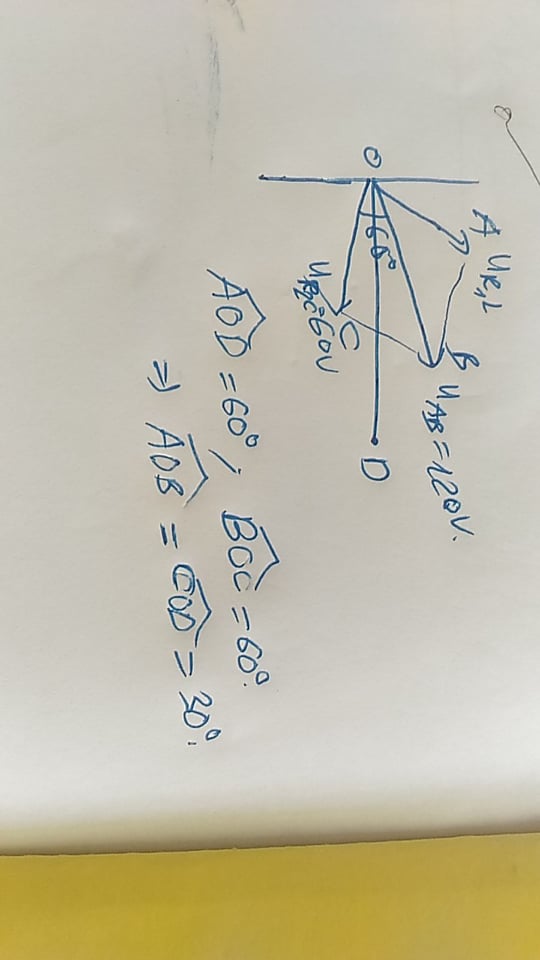 A U_{R_1L}
B U_{AB}=120V.
O 60° D
C
U_{R_2C}=60V
\widehat{AOD} = 60° ; \widehat{BOC} = 60°.
=> \widehat{AOB} = \widehat{COD} = 30°.